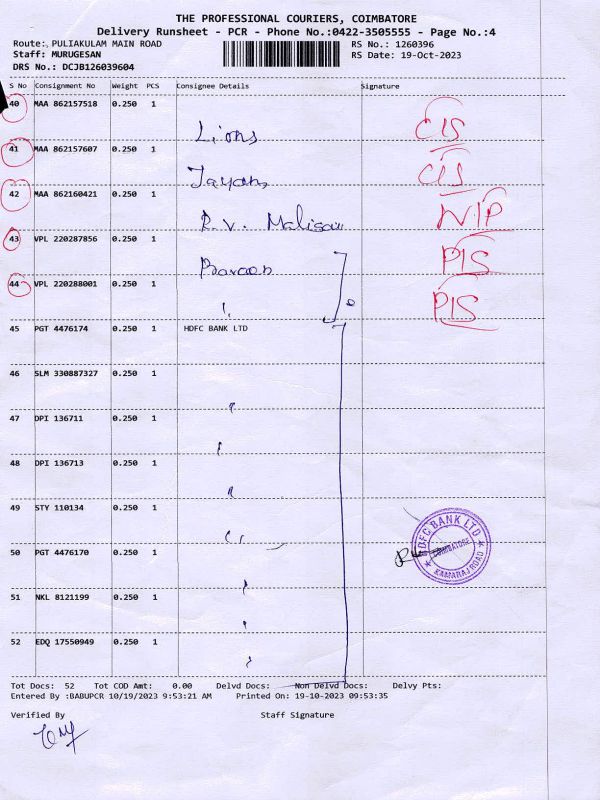 THE PROFESSIONAL COURIERS, COIMBATORE
Delivery Runsheet - PCR - Phone No.:0422-3505555 - Page No.:4
Route: PULIAKULAM MAIN ROAD RS No.: 1260396
Staff: MURUGESAN RS Date: 19-Oct-2023
DRS No.: DCJB126039604
S No Consignment No Weight PCS Consignee Details Signature
40 MAA 862157518 0.250 1 Lions CIS
41 MAA 862157607 0.250 1 CIS
42 MAA 862160421 0.250 1 R.V. NIP
43 VPL 220287856 0.250 1 PIS
44 VPL 220288001 0.250 1 PIS
45 PGT 4476174 0.250 1 HDFC BANK LTD
46 SLM 330887327 0.250 1
47 DPI 136711 0.250 1
48 DPI 136713 0.250 1
49 STY 110134 0.250 1
50 PGT 4476170 0.250 1
HDFC BANK LTD
COIMBATORE
KAMARAJ ROAD
51 NKL 8121199 0.250 1
52 EDQ 17550949 0.250 1
Tot Docs: 52 Tot COD Amt: 0.00 Delvd Docs: Non Delvd Docs: Delvy Pts:
Entered By :BABUPCR 10/19/2023 9:53:21 AM Printed On: 19-10-2023 09:53:35
Verified By Staff Signature